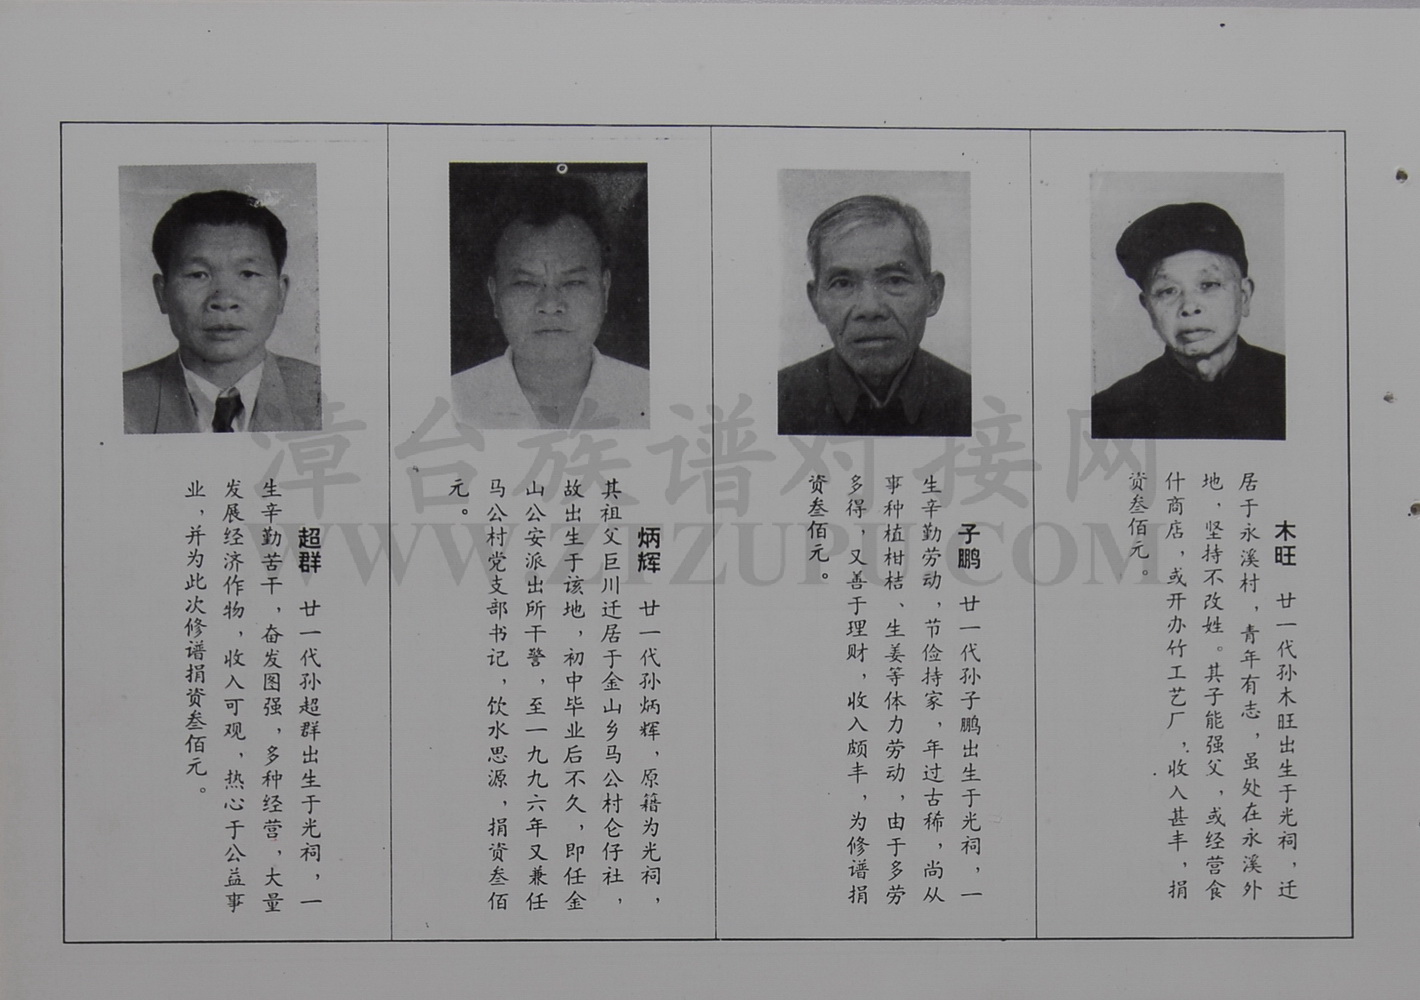 木旺 廿一代孙木旺出生于光祠，迁
居于永溪村，青年有志，虽处在永溪外
地，坚持不改姓。其子能强父，或经营食
什商店，或开办竹工艺厂，收入甚丰，捐
资叁佰元。
子鹏 廿一代孙子鹏出生于光祠，一
生辛勤劳动，节俭持家，年过古稀，尚从
事种植柑桔、生姜等体力劳动，由于多劳
多得，又善于理财，收入颇丰，为修谱捐
资叁佰元。
炳辉 廿一代孙炳辉，原籍为光祠，
其祖父巨川迁居于金山乡马公村仑仔社，
故出生于该地，初中毕业后不久，即任金
山公安派出所干警，至一九九六年又兼任
马公村党支部书记，饮水思源，捐资叁佰
元。
超群 廿一代孙超群出生于光祠，一
生辛勤苦干，奋发图强，多种经营，大量
发展经济作物，收入可观，热心于公益事
业，并为此次修谱捐资叁佰元。
漳台族谱对接网
WWW.ZTZUPU.COM